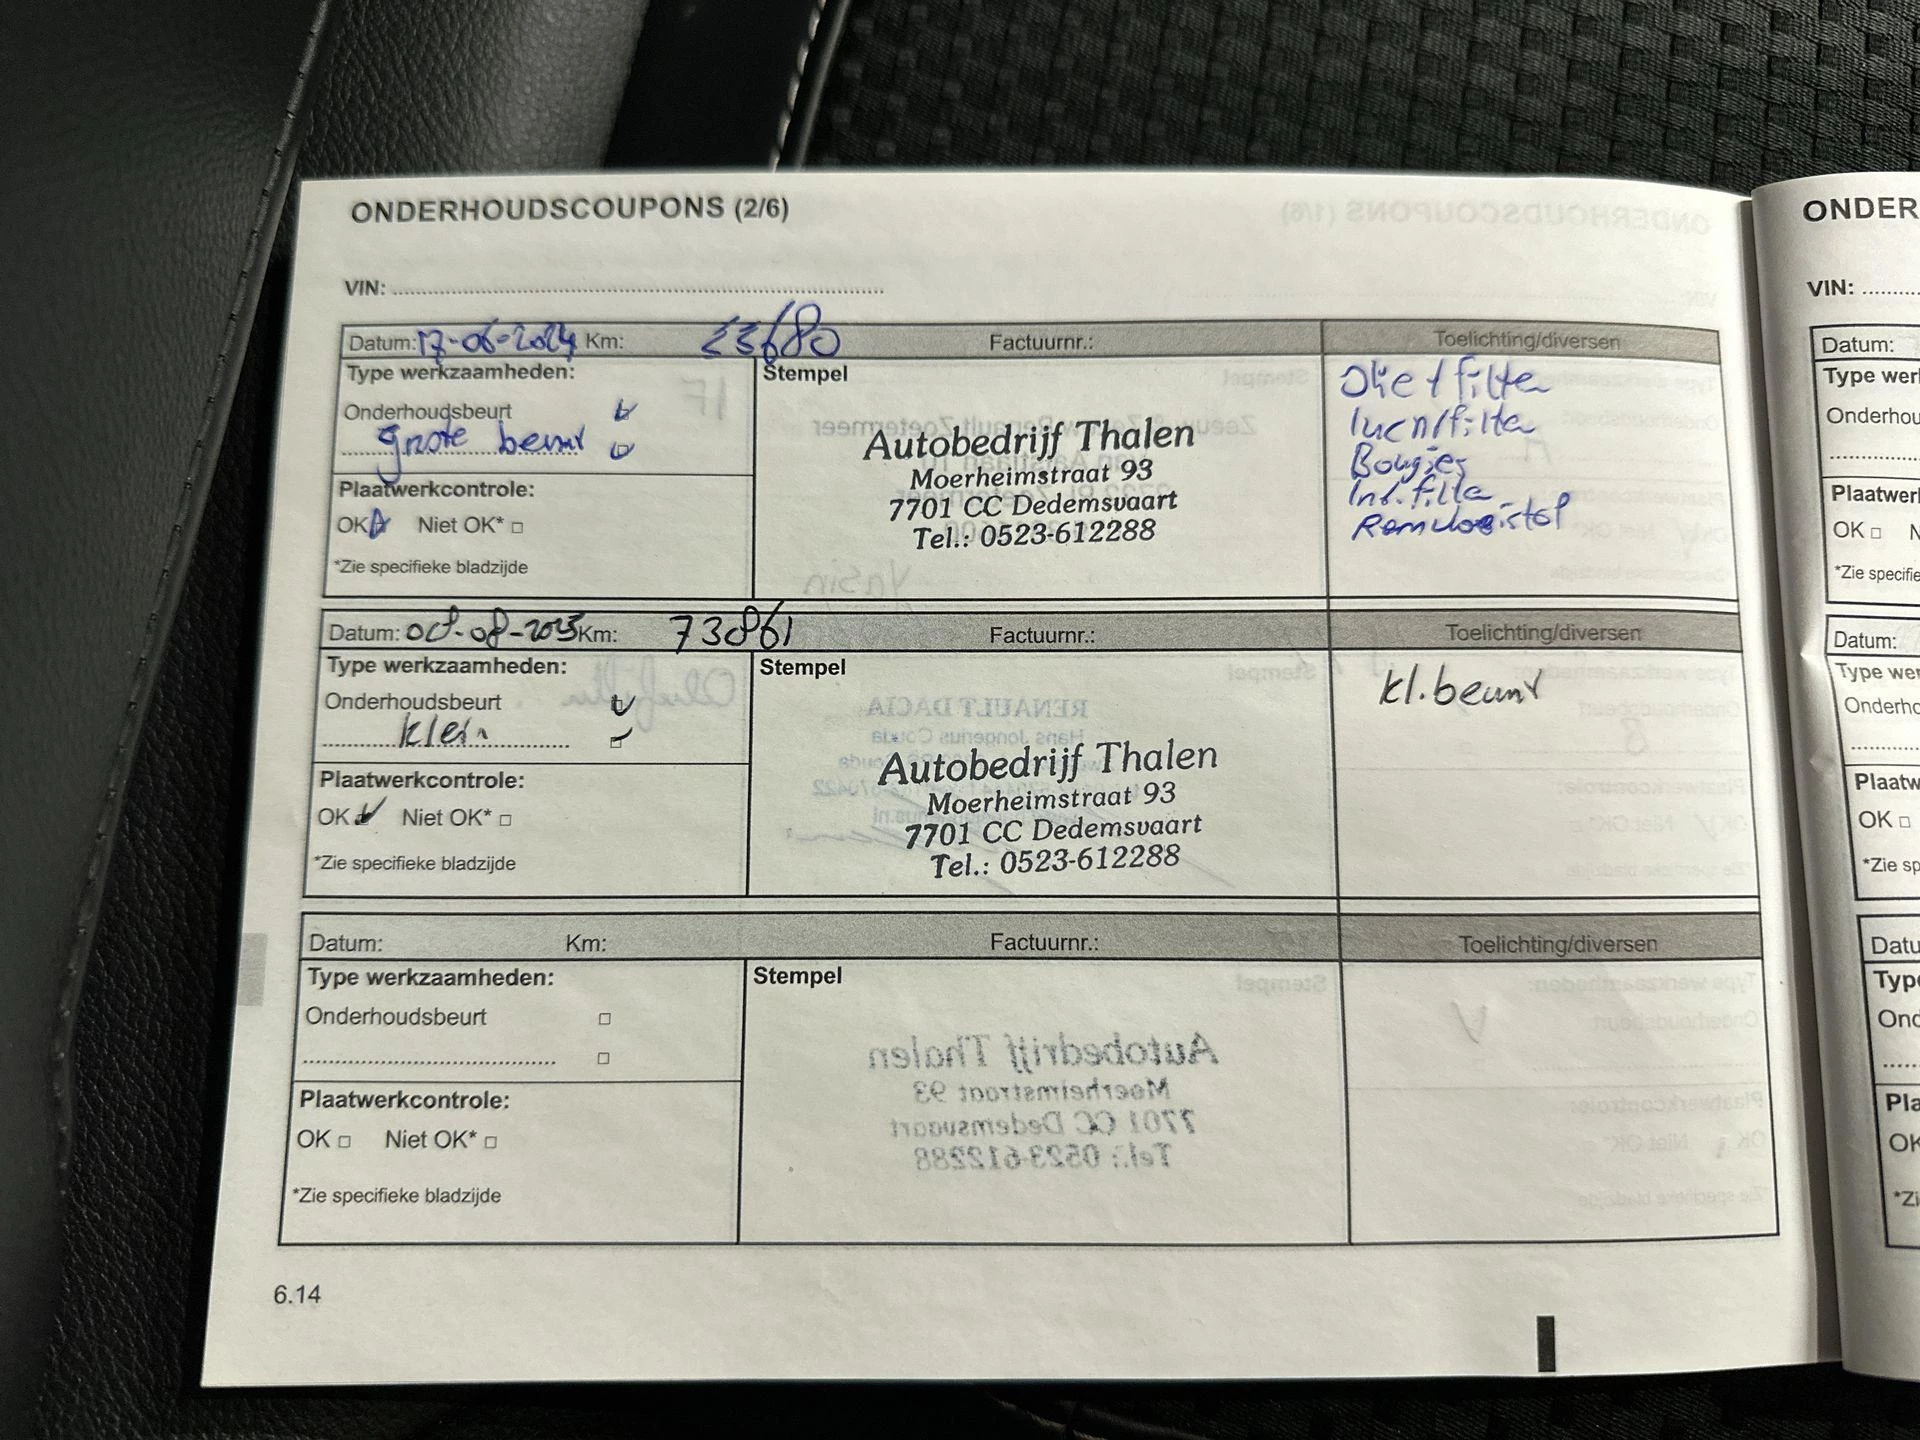 ONDERHOUDSCOUPONS (2/6)
VIN:
Datum: 17-06-2024 Km: Factuurnr.: Toelichting/diversen
Type werkzaamheden:
Stempel
Onderhoudsbeurt
grote beurt
Plaatwerkcontrole:
OK Niet OK*
*Zie specifieke bladzijde
Autobedrijf Thalen
Moerheimstraat 93
7701 CC Dedemsvaart
Tel.: 0523-612288
Olie + filter
lucht/filter
Bougies
Int. filter
Remvloeistof
Datum: 08-08-2025 Km: 73861 Factuurnr.: Toelichting/diversen
Type werkzaamheden:
Stempel
Onderhoudsbeurt
klein
Plaatwerkcontrole:
OK Niet OK*
*Zie specifieke bladzijde
Autobedrijf Thalen
Moerheimstraat 93
7701 CC Dedemsvaart
Tel.: 0523-612288
kl. beurt
Datum: Km: Factuurnr.: Toelichting/diversen
Type werkzaamheden:
Stempel
Onderhoudsbeurt
Plaatwerkcontrole:
OK Niet OK*
*Zie specifieke bladzijde
6.14
ONDER
VIN:
Datum:
Type wer
Onderhou
Plaatwerk
OK
*Zie specifie
Datum:
Type wer
Onderho
Plaatw
OK
*Zie sp
Datu
Type
Ond
Pla
OK
*Zi